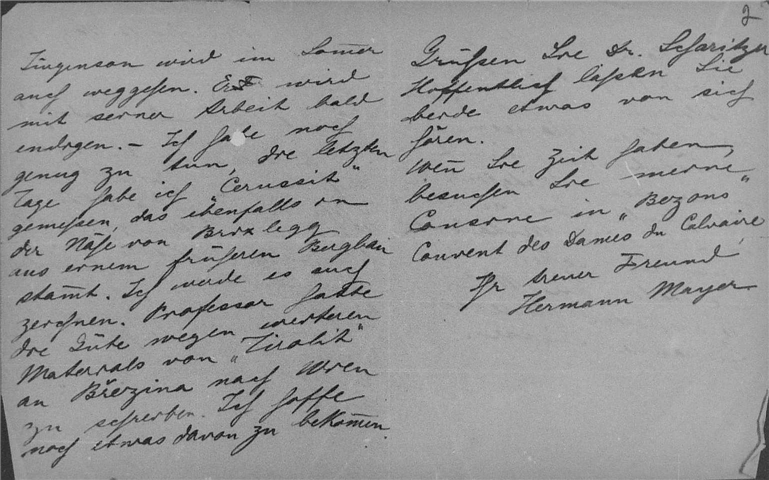 2
Jürgenson wird im Somer
auch weggehen. Er wird
mit seiner Arbeit bald
endigen. – Ich habe noch
genug zu tun, die letzten
Tage habe ich „Cerussit"
gemessen, das ebenfalls in
der Nähe von Brixlegg
aus einem früheren Bergbau
stamt. Ich werde es auch
zeichnen. Professor hatte
die Güte wegen weiteren
Materials von „Tirolit"
an Březina nach Wien
zu schreiben. Ich hoffe
noch etwas davon zu bekomen
Grüßen Sie Dr. Scharitzer
Hoffentlich laßen Sie
beide etwas von sich
hören.
Wen Sie Zeit haben,
besuchen Sie meine
Cousine in „Bezons"
Couvent des Dames du Calvaire
Ihr treuer Freund
Hermann Mayer